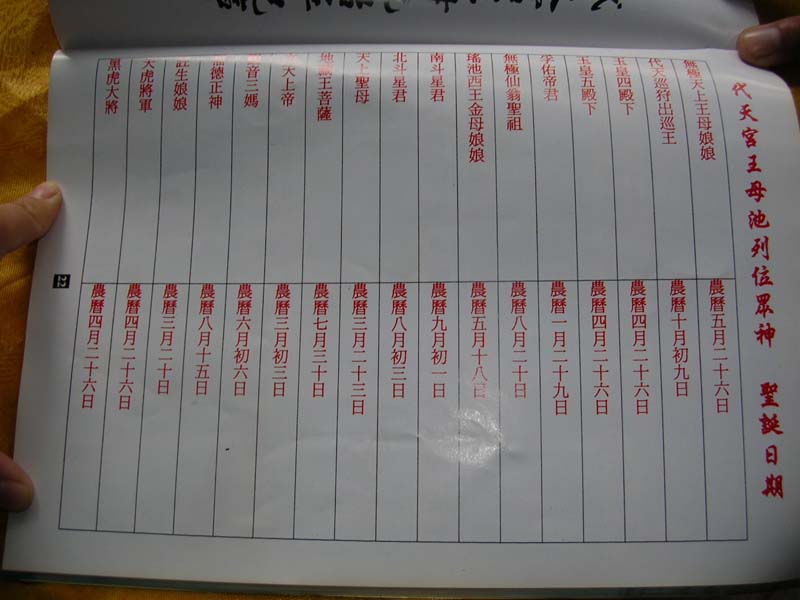 代天宮王母池列位眾神 聖誕日期
無極天上王母娘娘 農曆五月二十六日
代天巡狩出巡王 農曆十月初九日
玉皇四殿下 農曆四月二十六日
玉皇五殿下 農曆四月二十六日
孚佑帝君 農曆一月二十九日
無極仙翁聖祖 農曆八月二十日
瑤池西王金母娘娘 農曆五月十八日
南斗星君 農曆九月初一日
北斗星君 農曆八月初三日
天上聖母 農曆三月二十三日
地藏王菩薩 農曆七月三十日
天上帝 農曆三月初三日
觀音三媽 農曆六月初六日
福德正神 農曆八月十五日
註生娘娘 農曆三月二十日
天虎將軍 農曆四月二十六日
黑虎大將 農曆四月二十六日
22